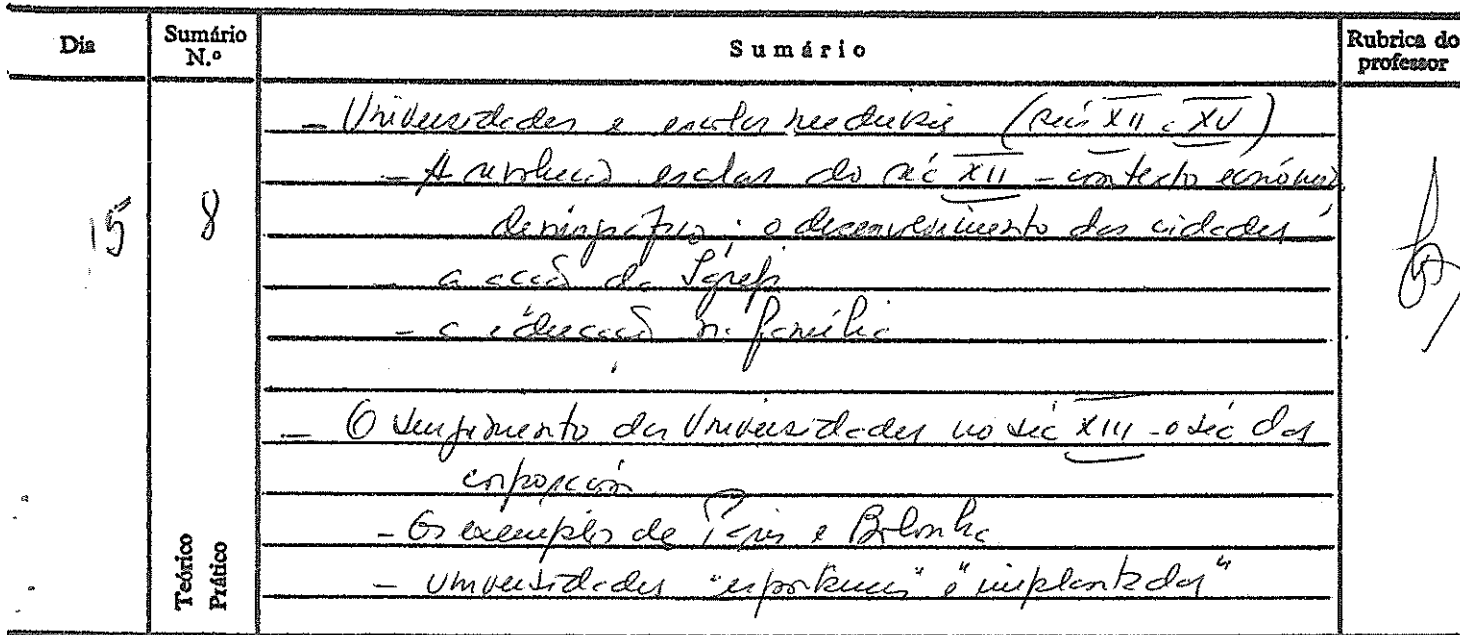 Dia
Sumário N.º
Sumário
Rubrica do professor
15
8
- Universidades e escolas medievais (sécs XII a XV)
- A revolução escolar do séc XII - contexto económico,
demográfico; o desenvolvimento das cidades
- a acção da Igreja
- a educação na família
- O surgimento das Universidades no séc XIII - o séc das
corporações
- Os exemplos de Paris e Bolonha
- Universidades "espontâneas" e "implantadas"
Teórico
Prático